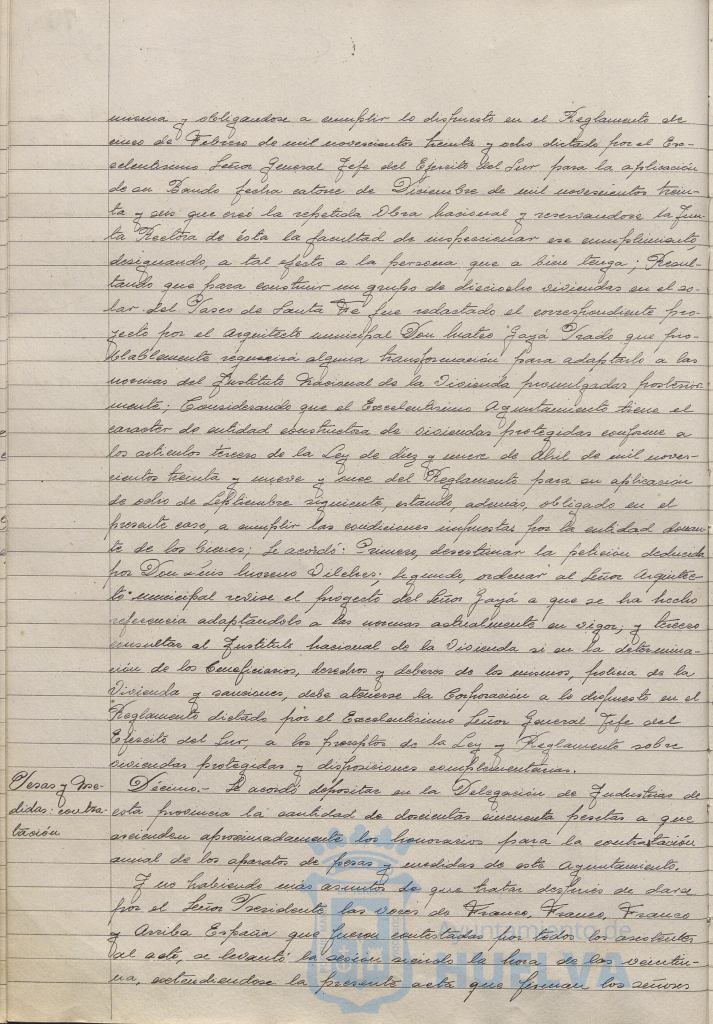 misma y obligandose a cumplir lo dispuesto en el Reglamento de
cinco de Febrero de mil novecientos treinta y ocho dictado por el Ex-
celentisimo Señor General Jefe del Ejercito del Sur para la aplicación
de su Bando fecha catorce de Diciembre de mil novecientos trein-
ta y seis que creó la repetida Obra Nacional y reservandose la Jun-
ta Rectora de ésta la facultad de inspeccionar ese cumplimiento,
designando, a tal efecto a la persona que a bien tenga; Resul-
tando que para construir un grupo de dieciocho viviendas en el so-
lar del Paseo de Santa Fé fue redactado el correspondiente pro-
yecto por el Arquitecto municipal Don Mateo Gayá Prado que pro-
blablemente requerirá alguna transformación para adaptarlo a las
normas del Instituto Nacional de la Vivienda promulgadas posterior-
mente; Considerando que el Excelentisimo Ayuntamiento tiene el
caracter de entidad constructora de viviendas protegidas conforme a
los articulos tercero de la Ley de diez y nueve de Abril de mil nove-
cientos treinta y nueve y once del Reglamento para su aplicación
de ocho de Septiembre siguiente, estando, además, obligado en el
presente caso, a cumplir las condiciones impuestas por la entidad donan-
te de los bienes; Se acordó: Primero, desestimar la peticion deducida
por Don Luis Moreno Vilches; Segundo, ordenar al Señor Arquitec-
to municipal revise el proyecto del Señor Gayá a que se ha hecho
referencia adaptándolo a las normas actualmente en vigor; y tercero
consultar al Instituto Nacional de la Vivienda si en la determina-
ción de los Beneficiarios, derechos y deberes de los mismos, policia de la
Vivienda y sanciones, debe atenerse la Corporación a lo dispuesto en el
Reglamento dictado por el Excelentisimo Señor General Jefe del
Ejército del Sur, a los preceptos de la Ley y Reglamento sobre
viviendas protegidas y disposiciones complementarias.
Pesas y Me-
didas: contra-
tación
Décimo.- Se acordó depositar en la Delegación de Industrias de
esta provincia la cantidad de doscientas cincuenta pesetas a que
ascienden aproximadamente los honorarios para la contratación
anual de los aparatos de pesas y medidas de este Ayuntamiento.
Y no habiendo más asuntos de que tratar después de darse
por el Señor Presidente las voces de Franco, Franco, Franco
y Arriba España que fueron contestadas por todos los asistentes
al acto, se levantó la sesión siendo la hora de las veintiu-
na, extendiendose la presente acta que firman los señores
Ayuntamiento de
HUELVA